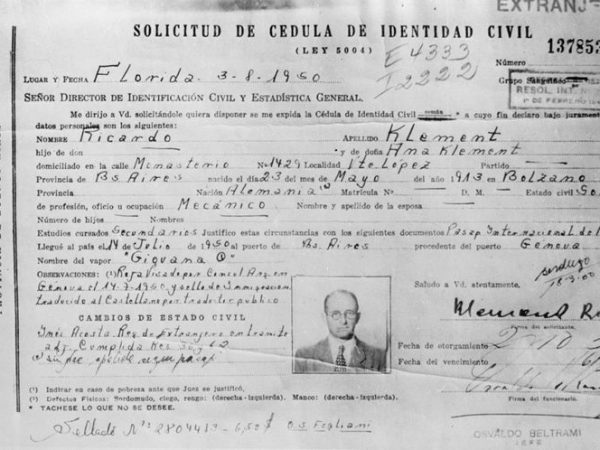 EXTRANJ
SOLICITUD DE CEDULA DE IDENTIDAD CIVIL
(LEY 5004)
E 4333
I 2222
Número 137853
LUGAR Y FECHA Florida 3-8-1950
Grupo Sanguíneo
RESOL. INT. N
1º DE FEBRERO
SEÑOR DIRECTOR DE IDENTIFICACIÓN CIVIL Y ESTADÍSTICA GENERAL.
Me dirijo a Vd. solicitándole quiera disponer se me expida la Cédula de Identidad Civil * a cuyo fin declaro bajo juramento
datos personales son los siguientes:
NOMBRE Ricardo APELLIDO Klement
hijo de don y de doña Ana Klement
domiciliado en la calle Monasterio Nº 1429 Localidad Vte López Partido
Provincia de Bs Aires nacido el día 23 del mes de Mayo del año 1913 en Bolzano
Provincia Nación Alemania Matrícula Nº D. M. Estado civil So
de profesión, oficio u ocupación Mecánico Nombre y apellido de la esposa
Número de hijos Nombres
Estudios cursados Secundarios Justifico estas circunstancias con los siguientes documentos Pasap Internacional
Llegué al país el 14 de Julio de 1950 al puerto de Bs. Aires precedente del puerto Genova
Nombre del vapor "Giovana C"
OBSERVACIONES: (1) Roja Visado por Consul Arg en
Genova el 14-7-1950 y sello de Inmigracion
traducido al Castellano por traductor publico
Saludo a Vd. atentamente,
CAMBIOS DE ESTADO CIVIL
Firma del solicitante.
Inés Acosta Reg de Extranjero en transito
Fecha de otorgamiento 2-10
Fecha de vencimiento
Firma del funcionario.
(¹) Indicar en caso de pobreza ante que Juez se justificó,
(²) Defectos Físicos: Sordomudo, ciego, rengo: (derecha - izquierda). Manco: (derecha-izquierda).
* TACHESE LO QUE NO SE DESEE.
Sellado Nº: 2804413-6,50$ O.S. Fogliani
OSVALDO BELTRAMI
JEFE